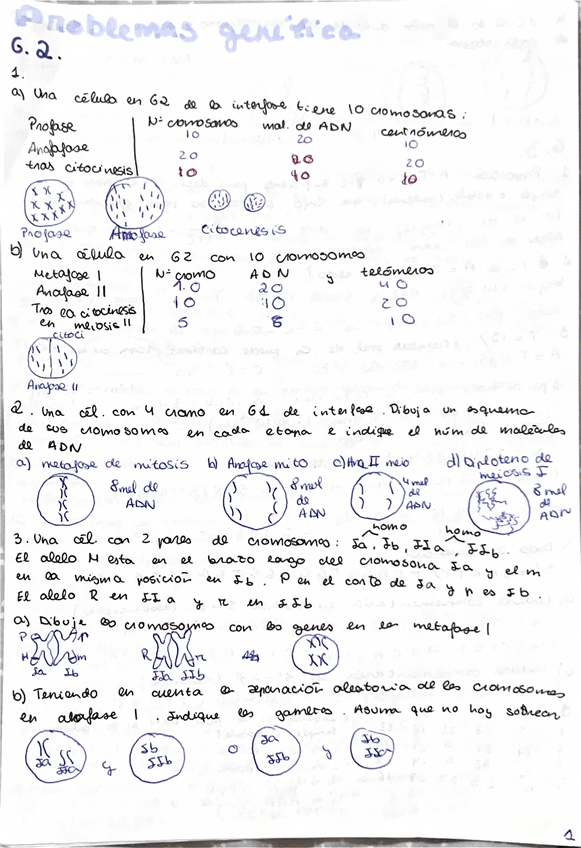 Problemas genética
G.2.
1.
a) Una célula en G2 de la interfase tiene 10 cromosomas:
Profase Nº cromosomas mol. de ADN centrómeros
10 20 10
Anafase 20 20 20
tras citocinesis 10 10 10
Profase Anafase Citocenesis
b) Una célula en G2 con 10 cromosomas
Metafase I Nº cromo ADN y telómeros
10 20 40
Anafase II 10 10 20
Tras la citocinesis en meiosis II 5 5 10
citoci
Anafase II
2. Una cél. con 4 cromo en G1 de interfase. Dibuja un esquema
de sus cromosomas en cada etapa e indique el núm de moléculas
de ADN
a) metafase de mitosis b) Anafase mito c) Ana II meio d) Diploteno de
meiosis I
8 mol de ADN 8 mol de ADN 4 mol de ADN 8 mol de ADN
homo homo
3. Una cél. con 2 pares de cromosomas: Ia, Ib, IIa, IIb.
El alelo M esta en el brazo largo del cromosoma Ia y el m
en la misma posición en Ib. P en el corto de Ia y p es Ib.
El alelo R en IIa y r en IIb
a) Dibuje los cromosomas con los genes en la metafase I
P p
M m R r
Ia Ib IIa IIb
b) Teniendo en cuenta la separación aleatoria de los cromosomas
en anafase I. Indique los gametos. Asuma que no hay sobrecr
Ia IIa y Ib IIb o Ia IIb y Ib IIa
1